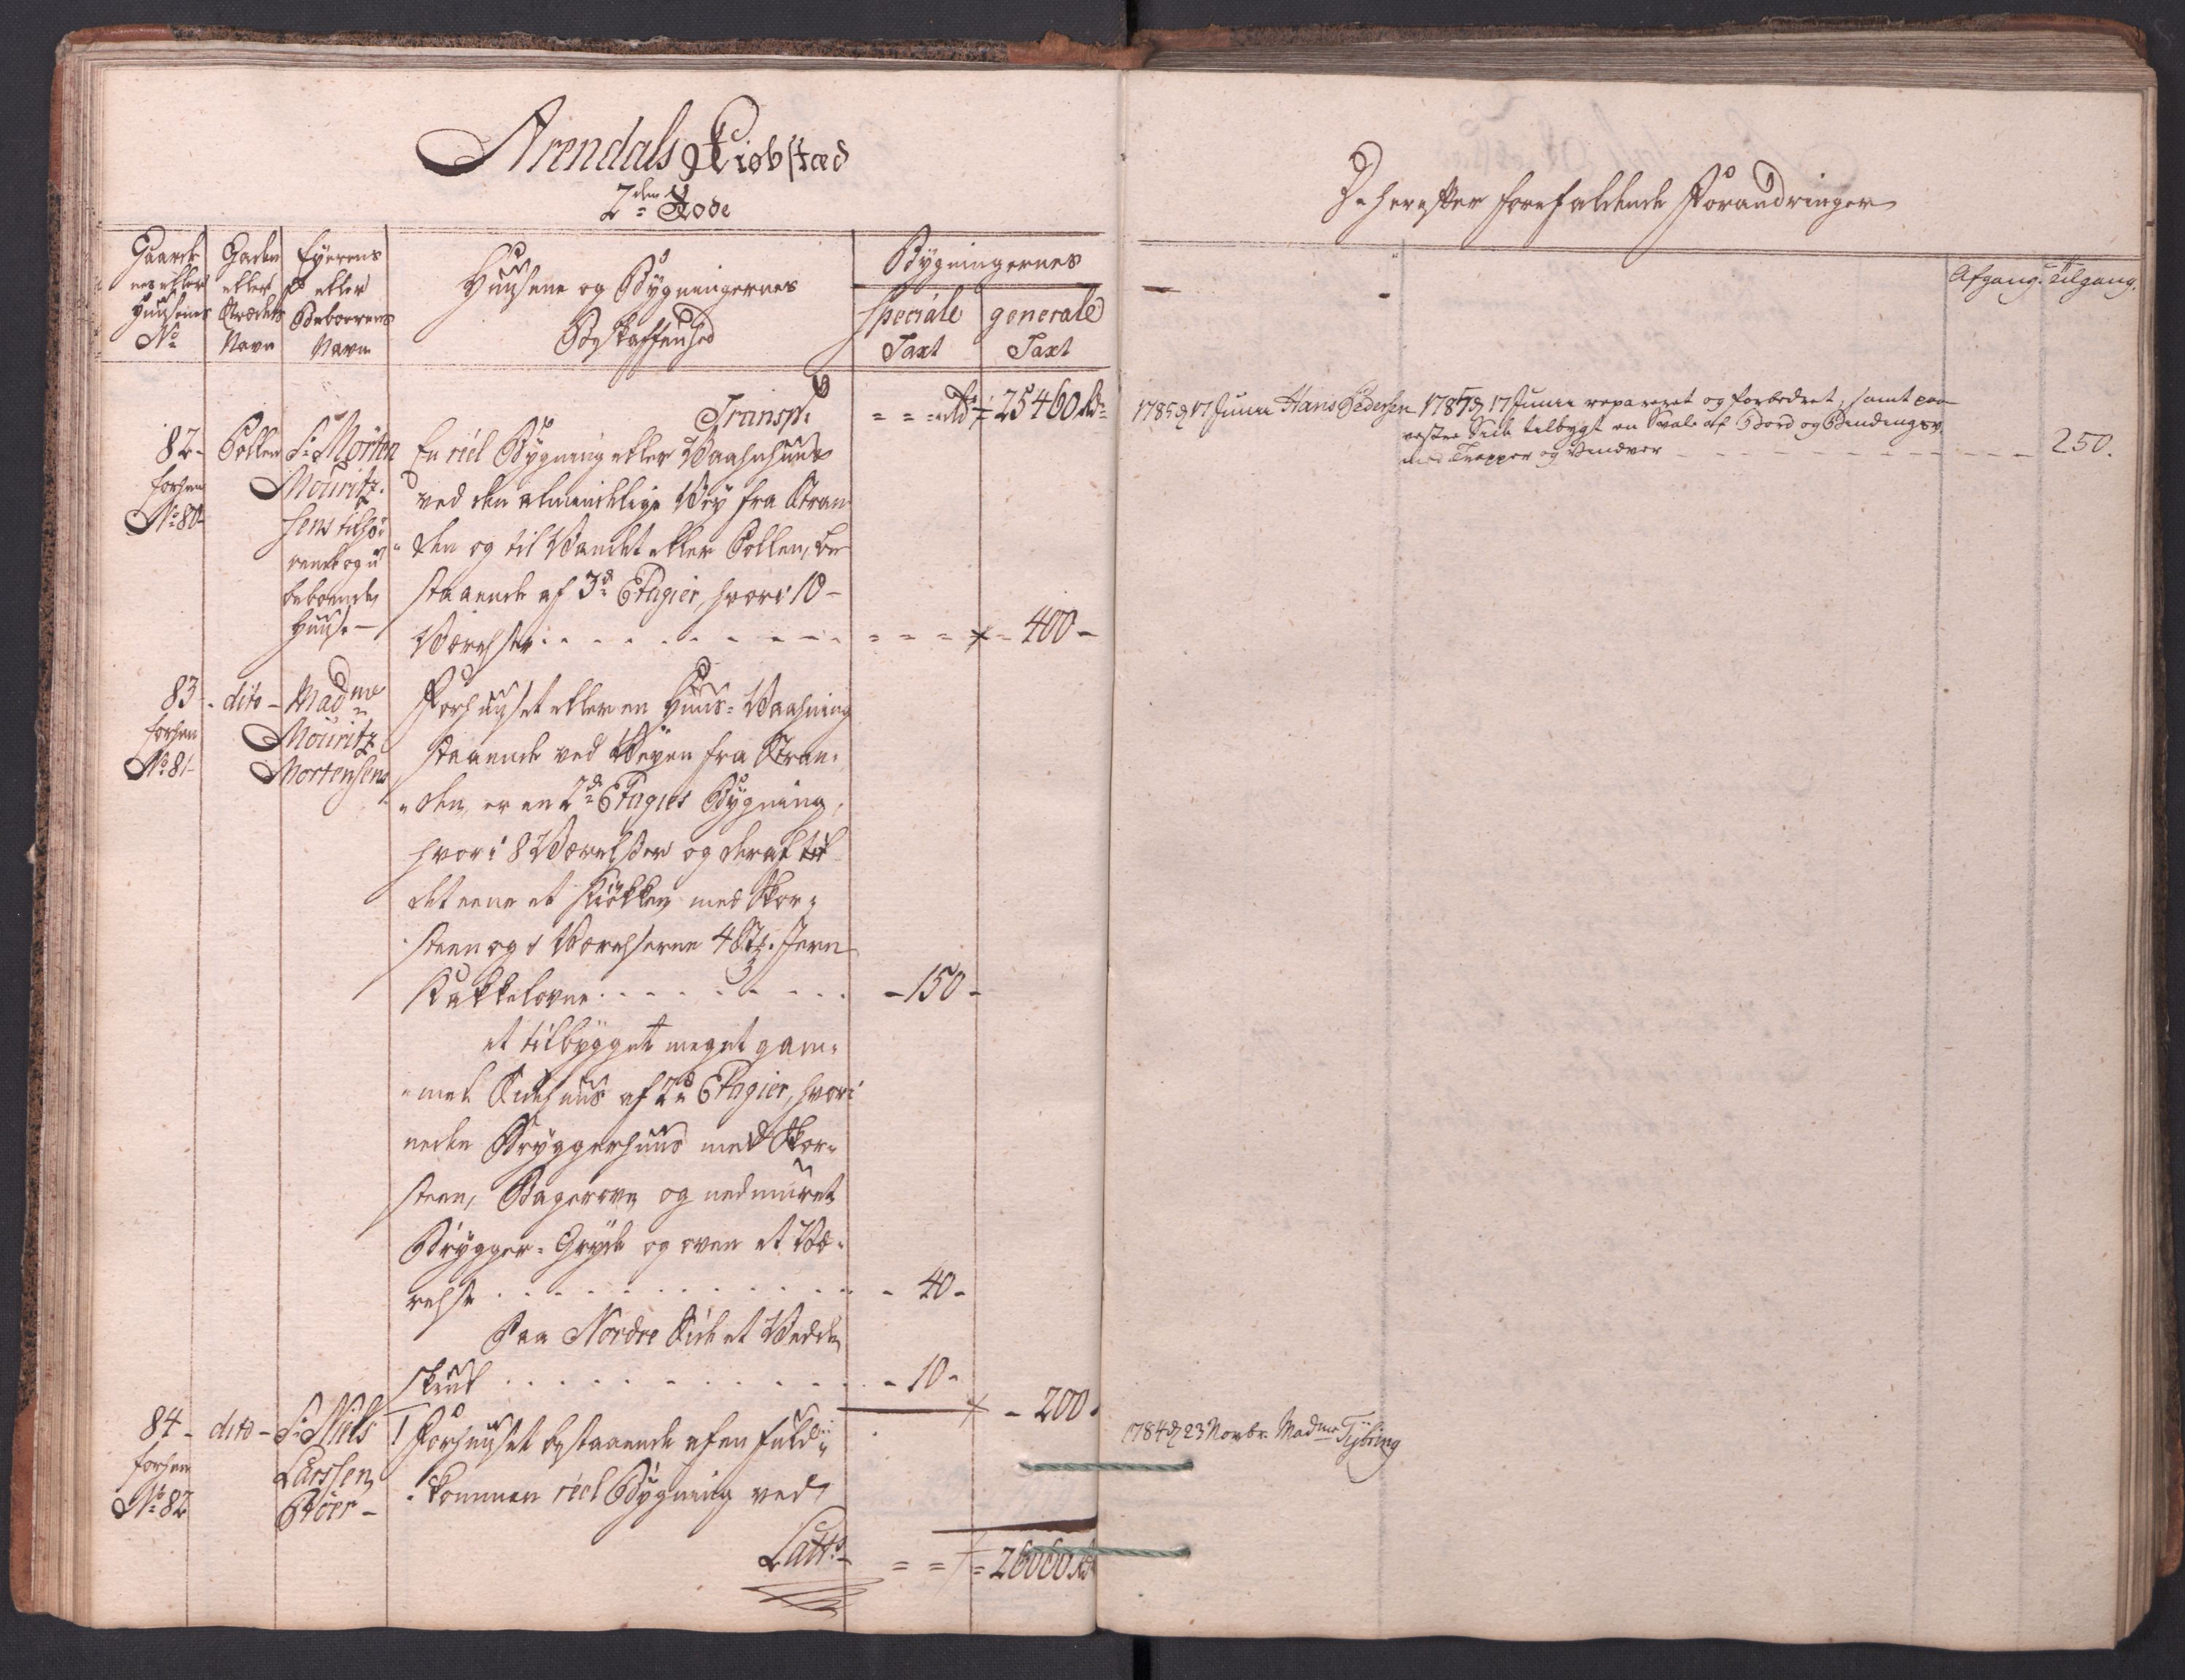 Arendals Kiøbstæd
2den Rode
Gaarde
nes eller
Huusenes
No
Gaden
eller
Strædets
Navn
Eyerens
eller
Beboerens
Navn
Huusene og Bygningernes
Beskaffenhed
Bygningernes
speciale
Taxt
generale
Taxt
Transpt = = = Rd = 25460 Rd
82 -
forhen
No 80
Pollen
Sr Morten
Mouritz
sens tilhø
rende og
beboende
Huus -
En riel Bygning eller Vaahnhuus
ved den almindelige Vey fra Stran
den og til Vandet eller Pollen, be
staaende af 3de Etagier, hvori 10 -
Værelser - - - - - - = = = - 400 -
83 - dito -
forhen
No 81 -
Madme
Mouritz
Mortensens
Forhuset eller en Huus-Vaahning
staaende ved Veyen fra Stran-
-den, er en 2de Etagies Bygning,
hvori 8 Værelser og deraf til
det eene et Kiøkken med Skor-
steen og i Værelserne 4 St. Jern
Kakkelovne - - - - - - 150 -
et tilbygget meget gam-
mel Sidehuus af 2de Etagier, hvori
neden Bryggerhuus med Skor-
steen, Bagerovn og nedmuret
Brygger-Gryde og oven et Væ-
relse - - - - - - 40 -
Paa Nordre Side et Vedde
skuul - - - - - - 10 -
- 200 -
84 - dito -
forhen
No 82
Sr Niels
Larssen
Støer -
Forhuset bestaaende af en fuld-
-kommen riel Bygning ved
Latts = = = 26060 Rd
De herefter forefaldende Forandringer
Afgang. Tilgang.
1785 d 17 Junii Hans Pedersen
1787 d 17 Junii repareret og forbedret, samt paa
vestre Side tilbygt en Svale af Bord og Bindingsv.
med Trapper og Vinduer - - - - - - 250.
1784 d 23 Novbr. Madme Tybring